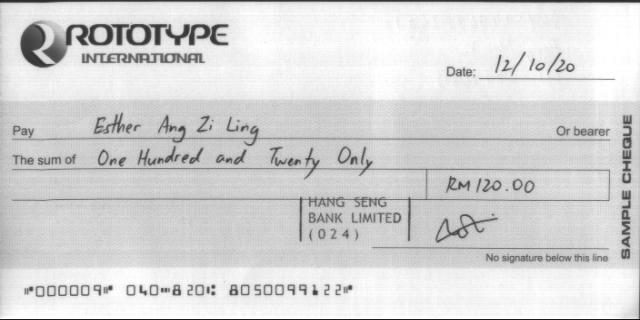 ROTOTYPE
INTERNATIONAL
Date: 12/10/20
Pay Esther Ang Zi Ling Or bearer
The sum of One Hundred and Twenty Only
RM120.00
HANG SENG
BANK LIMITED
(024)
No signature below this line
SAMPLE CHEQUE
⑈000009⑈ 040⑉820⑆ 8050099122⑈